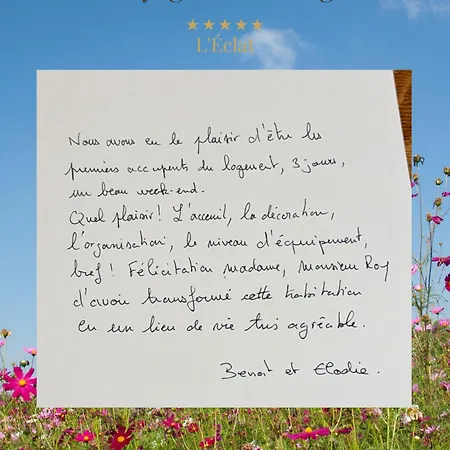 L'Éclat
Nous avons eu le plaisir d'être les
premiers occupants du logement, 3 jours,
un beau week-end.
Quel plaisir! L'acceuil, la décoration,
l'organisation, le niveau d'équipement,
bref! Félicitation madame, monsieur Roy
d'avoir transformé cette habitation
en un lieu de vie très agréable.
Benoit et Elodie.